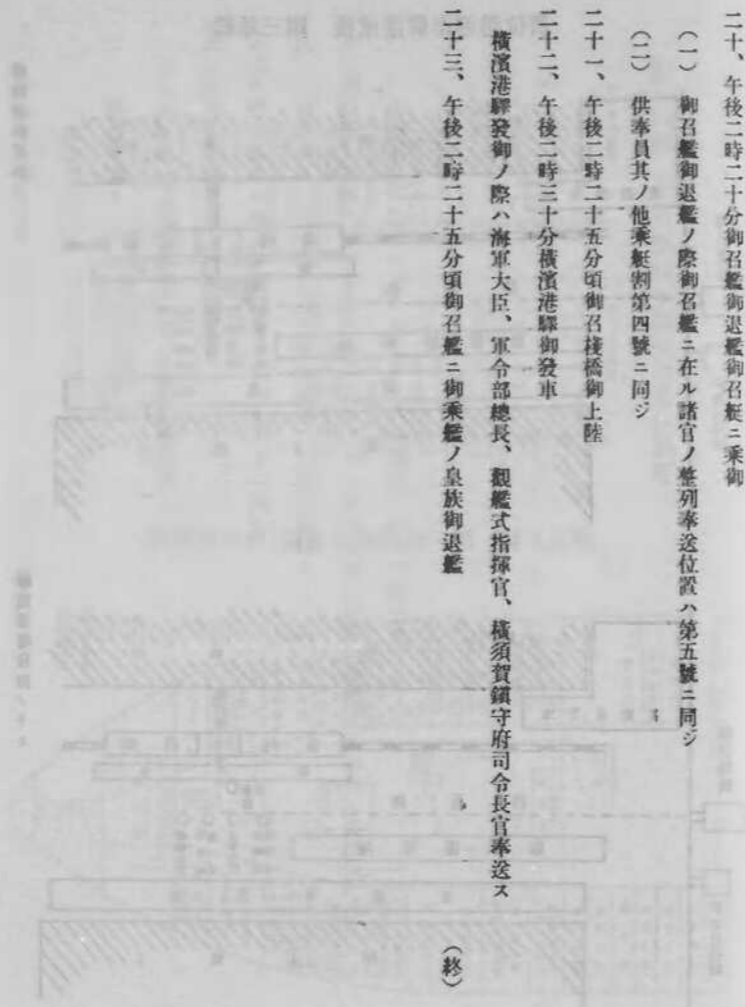 二十、午後二時二十分御召艦御退艦御召艇ニ乘御
（一）御召艦御退艦ノ際御召艦ニ在ル諸官ノ整列奉送位置ハ第五號ニ同ジ
（二）供奉員其ノ他乘艇割第四號ニ同ジ
二十一、午後二時二十五分頃御召棧橋御上陸
二十二、午後二時三十分横濱港驛御發車
横濱港驛發御ノ際ハ海軍大臣、軍令部總長、觀艦式指揮官、横須賀鎭守府司令長官奉送ス
二十三、午後二時二十五分頃御召艦ニ御乘艦ノ皇族御退艦
（終）